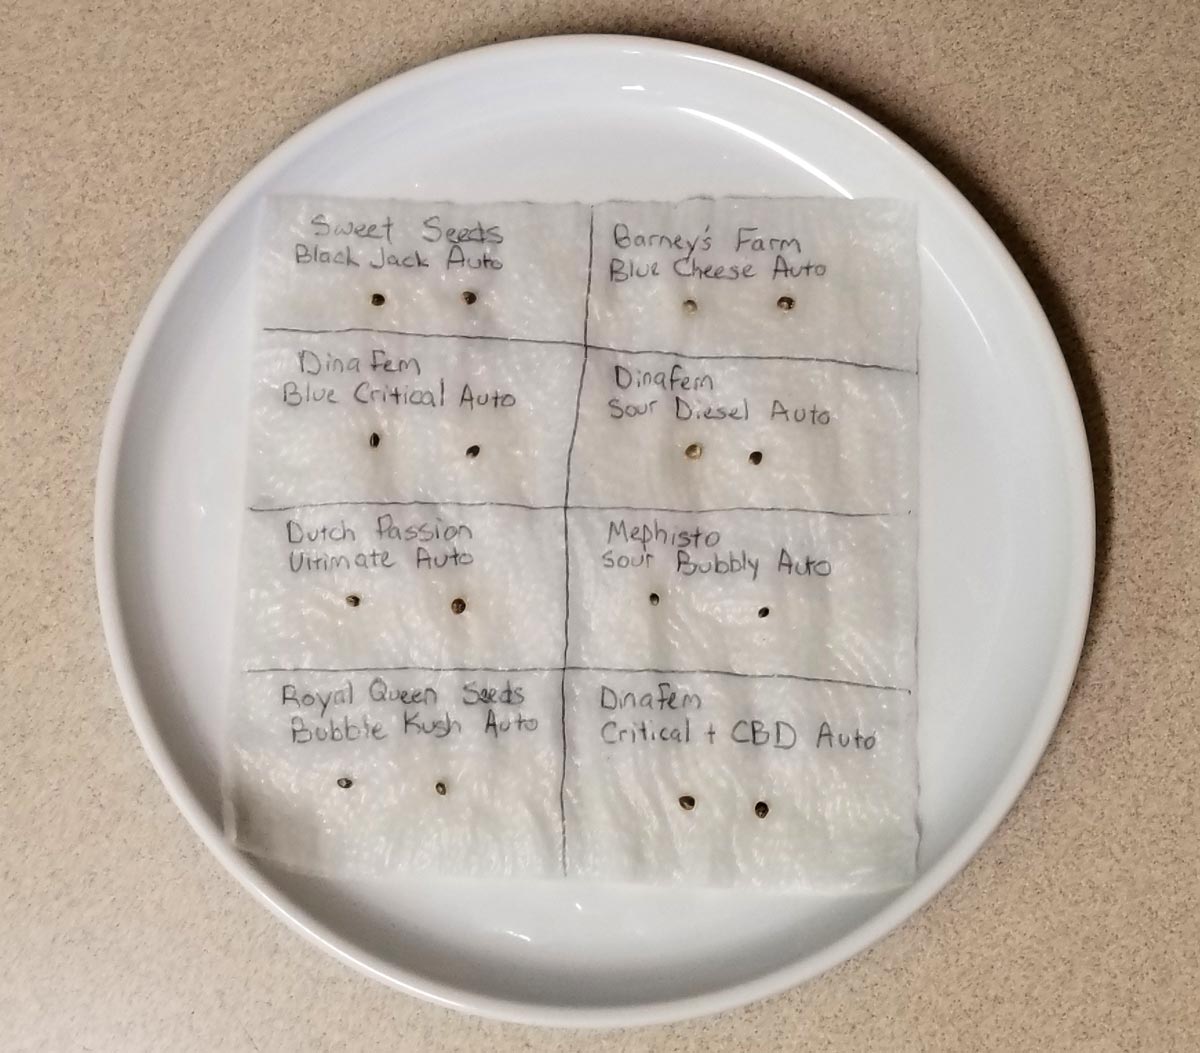 Sweet Seeds
Black Jack Auto
Barney's Farm
Blue Cheese Auto
Dinafem
Blue Critical Auto
Dinafem
Sour Diesel Auto
Dutch Passion
Ultimate Auto
Mephisto
Sour Bubbly Auto
Royal Queen Seeds
Bubble Kush Auto
Dinafem
Critical + CBD Auto